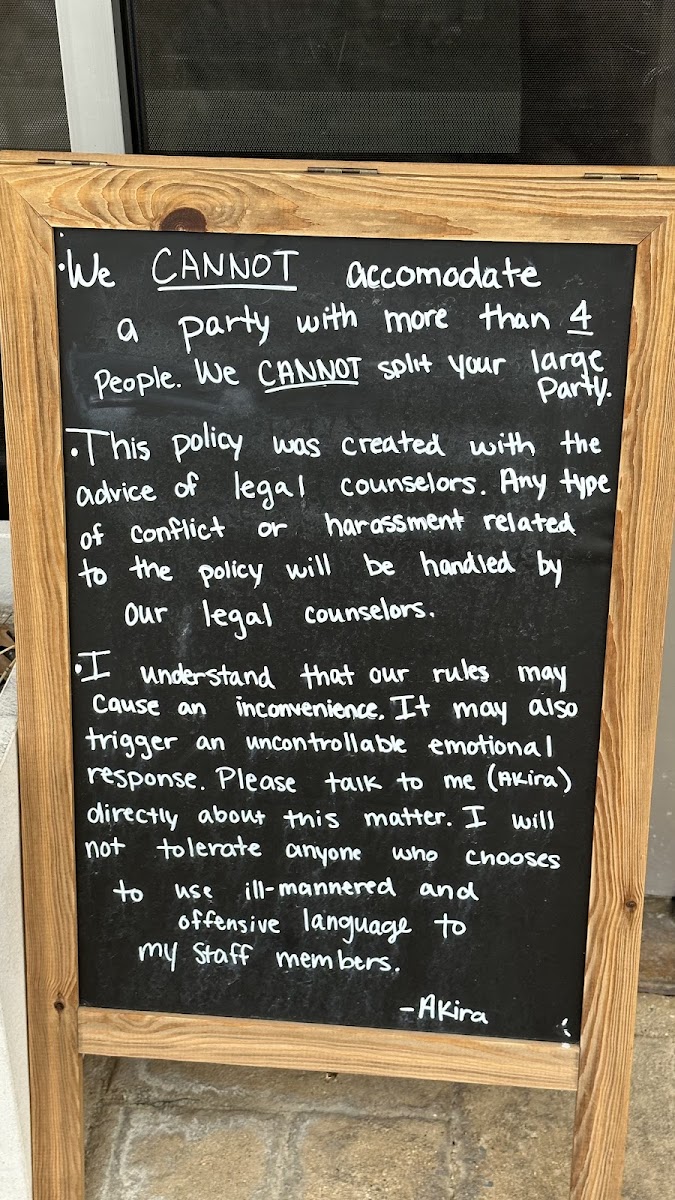 •We CANNOT accomodate
a party with more than 4
People. We CANNOT split your large
Party.
•This policy was created with the
advice of legal counselors. Any type
of conflict or harassment related
to the policy will be handled by
our legal counselors.
•I understand that our rules may
cause an inconvenience. It may also
trigger an uncontrollable emotional
response. Please talk to me (Akira)
directly about this matter. I will
not tolerate anyone who chooses
to use ill-mannered and
offensive language to
my staff members.
-Akira